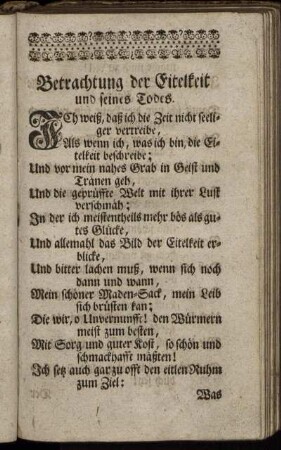 Betrachtung der Eitelkeit
und seines Todes.
ICh weiß, daß ich die Zeit nicht seeli-
ger vertreibe,
Als wenn ich, was ich bin, die Ei-
telkeit beschreibe;
Und vor mein nahes Grab in Geist und
Tränen geh,
Und die geprüffte Welt mit ihrer Lust
verschmäh;
In der ich meistentheils mehr bös als gu-
tes Glücke,
Und allemahl das Bild der Eitelkeit er-
blicke,
Und bitter lachen muß, wenn sich noch
dann und wann,
Mein schöner Maden-Sack, mein Leib
sich brüsten kan;
Die wir, o Unvernunfft! den Würmern
meist zum besten,
Mit Sorg und guter Kost, so schön und
schmackhafft mästen!
Ich setz auch gar zu offt den eitlen Ruhm
zum Ziel:
Was